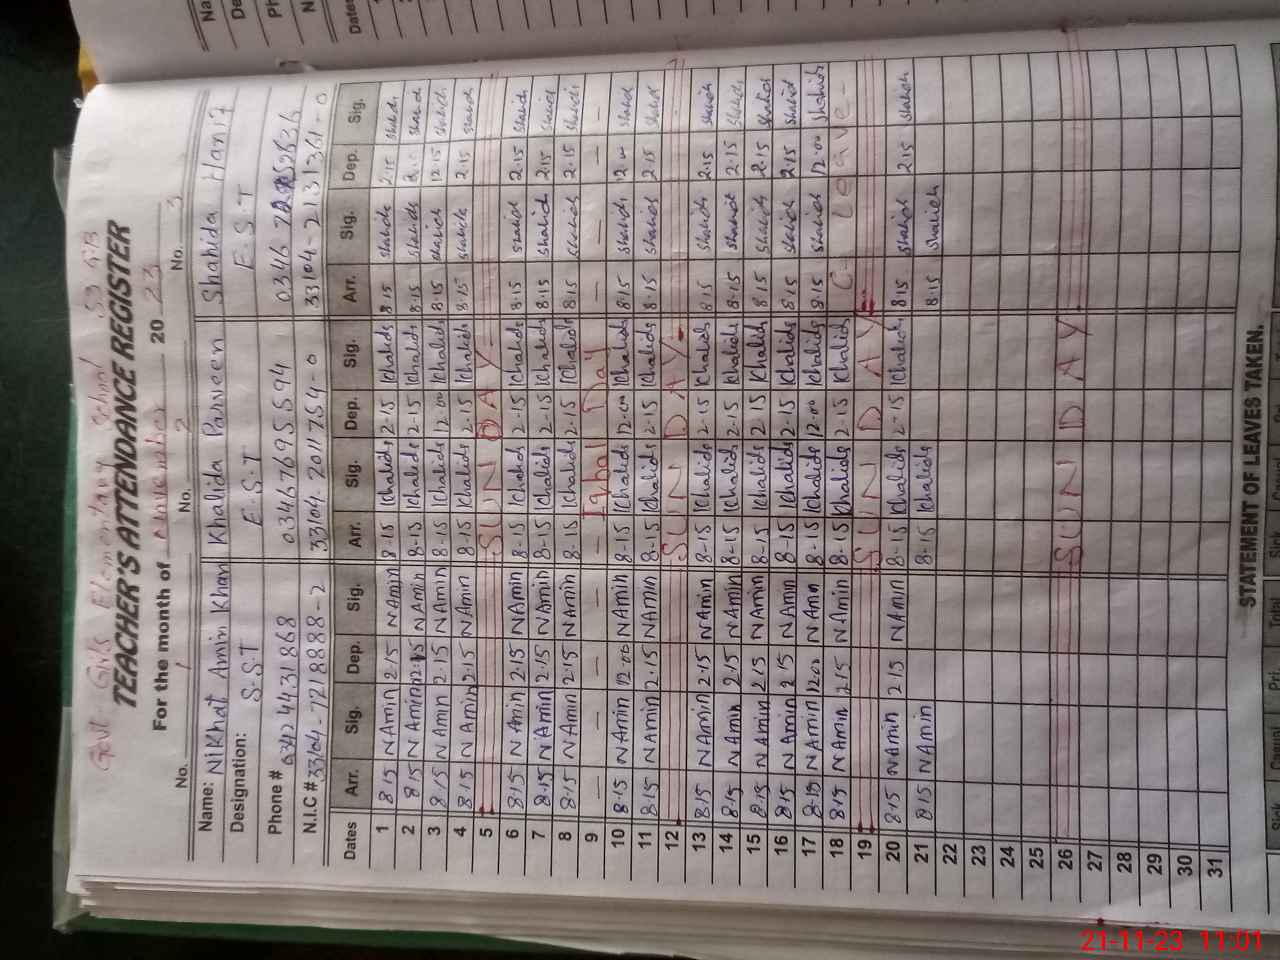 Govt. Girls Elementary School 53 GB
TEACHER'S ATTENDANCE REGISTER
For the month of November 2023
No. 1 No. 2 No. 3
Name: Nikhat Amin Khan Khalida Parveen Shahida Hanif
Designation: S.S.T E.S.T E.S.T
Phone # 03424431868 03467695594 0346
N.I.C # 33104-7218888-2 33104 2011754-0 33104-2131361-0
Dates Arr. Sig. Dep. Sig. Arr. Sig. Dep. Sig. Arr. Sig. Dep. Sig.
1 8.15 NAmin 2.15 NAmin 8-15 Khalida 2-15 Khalida 8.15 Shahida 2.15 Shahida
2 8.15 NAmin 2.15 NAmin 8-15 Khalida 2-15 Khalida 8.15 Shahida Shahida
3 8.15 NAmin 2.15 NAmin 8-15 Khalida 12.00 Khalida 8.15 Shahida 12.15 Shahida
4 8.15 NAmin 2.15 NAmin 8-15 Khalida 2.15 Khalida 8.15 Shahida 2.15 Shahida
5 SUNDAY
6 8.15 NAmin 2.15 NAmin 8-15 Khalida 2-15 Khalida 8.15 Shahida 2.15 Shahida
7 8.15 NAmin 2.15 NAmin 8-15 Khalida 2-15 Khalida 8.15 Shahida 2.15 Shahida
8 8.15 NAmin 2.15 NAmin 8-15 Khalida 2-15 Khalida 8.15 Shahida 2.15 Shahida
9 — — — — — Iqbal Day — — — —
10 8.15 NAmin 12.00 NAmin 8-15 Khalida 12.00 Khalida 8.15 Shahida Shahida
11 8.15 NAmin 2.15 NAmin 8-15 Khalida 2.15 Khalida 8.15 Shahida 2.15 Shahida
12 SUNDAY
13 8.15 NAmin 2.15 NAmin 8-15 Khalida 2-15 Khalida 8.15 Shahida 2.15 Shahida
14 8.15 NAmin 2.15 NAmin 8-15 Khalida 2.15 Khalida 8.15 Shahida 2.15 Shahida
15 8.15 NAmin 2.15 NAmin 8-15 Khalida 2.15 Khalida 8.15 Shahida 2.15 Shahida
16 8.15 NAmin 2.15 NAmin 8-15 Khalida 2.15 Khalida 8.15 Shahida 2.15 Shahida
17 8.15 NAmin 12.00 NAmin 8-15 Khalida 12.00 Khalida 8.15 Shahida 12.00 Shahida
18 8.15 NAmin 2.15 NAmin 8.15 Khalida 2.15 Khalida C. Leave -
19 SUNDAY
20 8.15 NAmin 2.15 NAmin 8-15 Khalida 2.15 Khalida 8.15 Shahida 2.15 Shahida
21 8.15 NAmin 8.15 Khalida 8.15 Shahida
22
23
24
25
26 SUNDAY
27
28
29
30
31
STATEMENT OF LEAVES TAKEN.
21-11-23 11:01